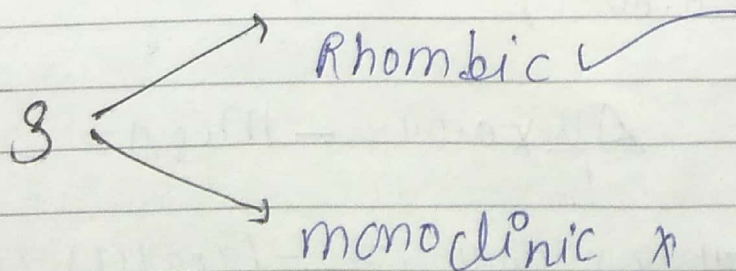 Rhombic ✓
S
monoclinic x